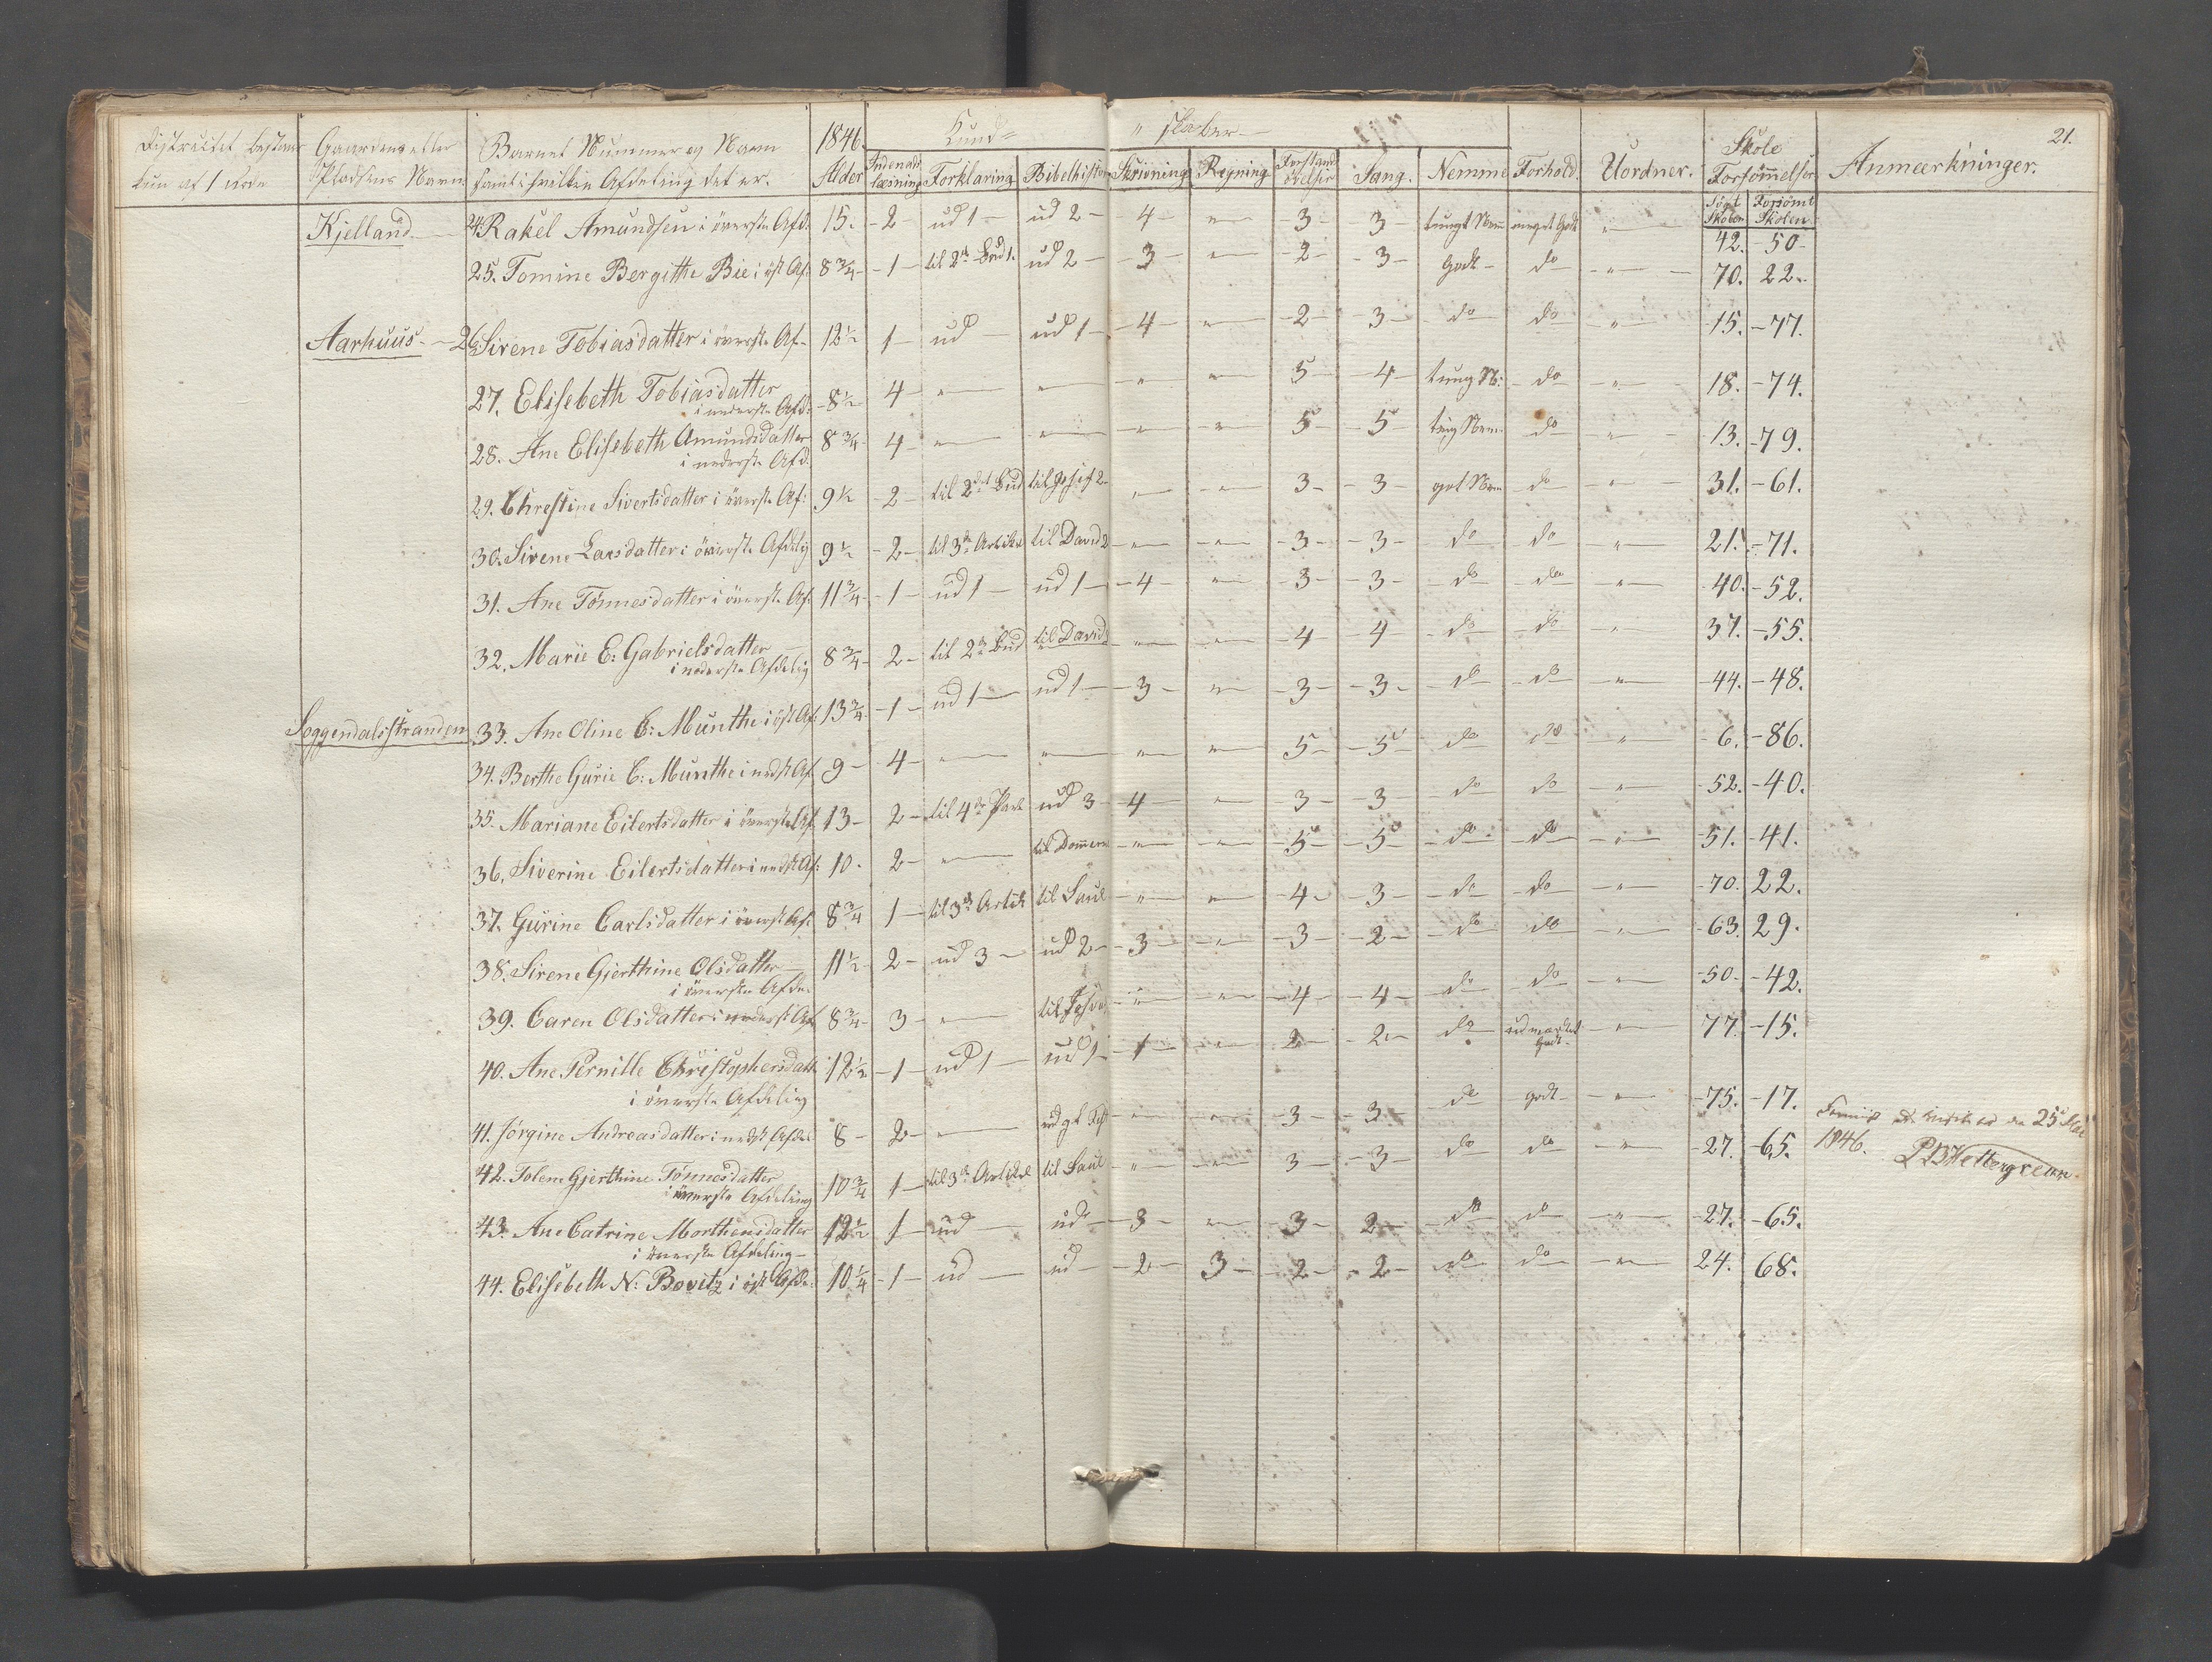 21.
Distrcitet bestaaer kun af 1 Rode
Gaardens eller Pladsens Navn
Barnets Nummer og Navn samt i hvilken Afdeling det er.
1846. Alder
Kund= " skaber
Indenads læsning Forklaring Bibelhistorie Skrivning Regning Forstands övelser Sang. Nemme Forhold. Uordner. Skole Forsömmelser Anmeerkninger.
Søgt Skolen Forsømt Skolen
Kjelland 24. Rakel Amundsen i överste Afd. 15. - 2 - ud 1 - ud 2 - 4 - " - 3 - 3 - tungt Nem meget Godt " 42. - 50 -
25. Tomine Bergithe Bie i öst Af. 8 3/4 - 1 - til 2det Bud 1. ud 2 - 3 - " - 2 - 3 - Godt - do - " - 70. 22.
Aarhuus - 26. Sirene Tobiasdatter i överste Af. 12 1/2 1 - ud - ud 1 - 4 - " - 2 - 3 - do - do - " - 15. - 77.
27. Elisebeth Tobiasdatter i nederste Afd. - 8 1/2 4 - " - " - " - " 5 - 4 - tung N: - do - " - 18. - 74.
28. Ane Elisebeth Amundsdatter i nederste Afd. 8 3/4 4 - " - " - " - " 5 - 5 - tung Nem - do - " - 13. - 79.
29. Christine Sivertsdatter i överste Af: 9 1/2 - 2 - til 2det Bud til Josef 2 - " - " 3 - 3 - got Nem do - " - 31. - 61.
30. Sirene Larsdatter i överste Afdelig 9 1/2 - 2 - til 3die Artikel til David 2 - " - " - 3 - 3 - do - do - " 21. - 71.
31. Ane Tönnesdatter i överste Af. 11 3/4 - 1 - ud 1 - ud 1 - 4 - " - 3 - 3 - do - do - " - 40. - 52.
32. Marie E: Gabrielsdatter i nederste Afdelig 8 3/4 - 2 - til 2det Bud til David - " - " - 4 - 4 - do - do - " 37. - 55.
Soggendalsstranden 33. Ane Oline C: Munthe i öst Af. 13 3/4 - 1 - ud 1 - ud 1 - 3 - " - 3 - 3 - do - do - " - 44. - 48.
34. Berthe Gurie C: Munthe i nedst Af. 9 - 4 - " - " - " - " 5 - 5 - do - do - " - 6. - 86.
35. Mariane Eilertsdatter i överste Af. 13 - 2 - til 4de Part ud 3 - 4 - " - 3 - 3 - do - do - " - 52. - 40.
36. Siverine Eilertsdatter i nedst Af: 10. 2 - " - til Domerne - " - " - 5 - 5 - do - do - " - 51. - 41.
37. Gurine Carlsdatter i överst Af. 8 3/4 1 - til 3die Artik til Saul - " - " - 4 - 3 - do - do - " - 70. 22.
38. Sirene Gjerthine Olsdatter i överste Afde. 11 1/2 2 - ud 3 - ud 2 - 3 - " - 3 - 2 - do - do - " - 63. 29.
39. Caren Olsdatter i nederst Af 8 3/4 3 - " - til Josva - " - " - 4 - 4 - do - do - " - 50. - 42.
40. Ane Pernille Christophersdatt. i överste Afdeling 12 1/2 - 1 - ud 1 - ud 1 - 1 - " - 2 - 2 - do - udmærket godt - " - 77. - 15.
41. Jörgine Andreasdatter i nedst Afdel 8 - 2 - " - " - " - 3 - 3 - do - godt - " - 75. - 17.
42. Tolene Gjerthine Tönnesdatter i överste Afdeling 10 3/4 1 - til 3die Artikel til Saul - " - " 3 - 3 - do - do - " - 27. - 65.
43. Ane Catrine Morthensdatter i överste Afdeling - 12 1/2 1 - ud - ud - 3 - " - 3 - 2 - do - do - " - 27. - 65.
44. Elisebeth N: Bovitz i öst Afde. 10 1/4 - 1 - ud - ud - 2 - 3 - 2 - 2 - do - do - " - 24. 68.
25de Mai
1846.